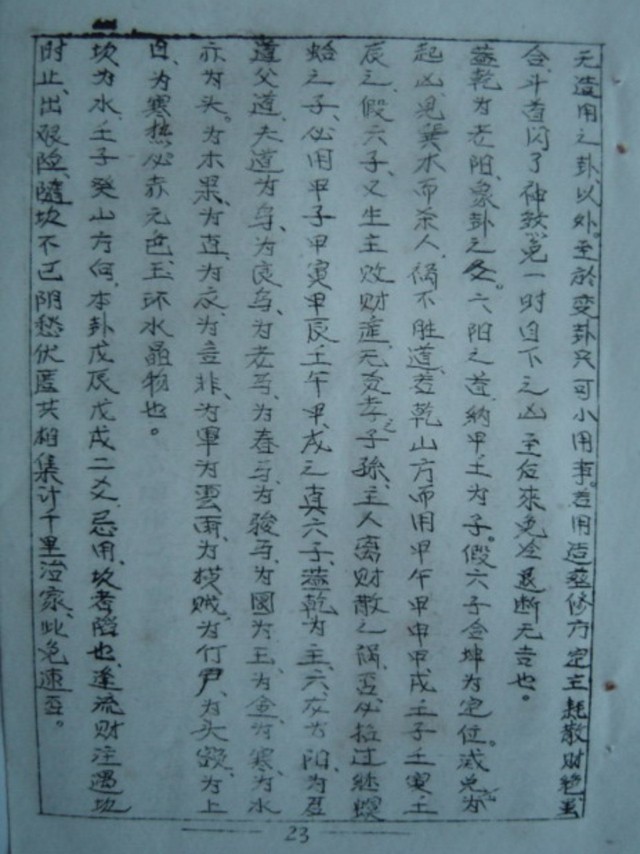 元造用之卦以外。至於变卦只可小用事。若用造葬修方定主耗散财绝
合、斗首闪了神煞,一时目下之凶至后来免冷退断无吉也。
葬乾为老阳、象卦之父。六阳之首、纳甲壬为子。假六子合坤为定位。或兑为
起凶见巽木而杀人、祸不胜道、若乾山方而用甲午甲申甲戌壬子壬寅壬
辰之、假六子、又生主败财产无义孝之子孫、主人离财散之祸、必招过继螟
蛉之子、必用甲子甲寅甲辰壬午甲戌之真六子、葬乾为主、六爻为阳、为君
道父道、夫道为马、为良马、为老马、为春马、为骏马、为圜为玉、为金、为寒、为水
亦为头。为木果、为直、为衣、为言非、为軍为雲雨、为横贼、为行尸、为头额、为上
日、为寒热必赤元色、玉环水晶物也。
坎为水、壬子癸山方向、本卦戊辰戊戌二爻、忌用、坎者陷也、逢流财注遇坎
时止、出艰险、隨坎不已阴愁伏匿共相集计千里治家、此免速
23